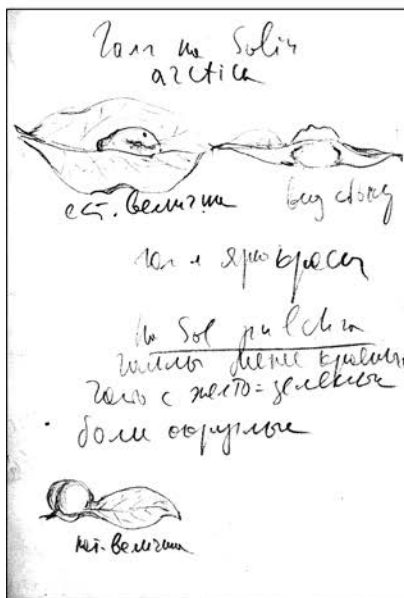 Галл на Salix
arctica
ест. величина
вид сбоку
галл ярко красн
на Sal pulchra
галлы менее красные
галлы с желто=зеленым
более округлые
нат. величина